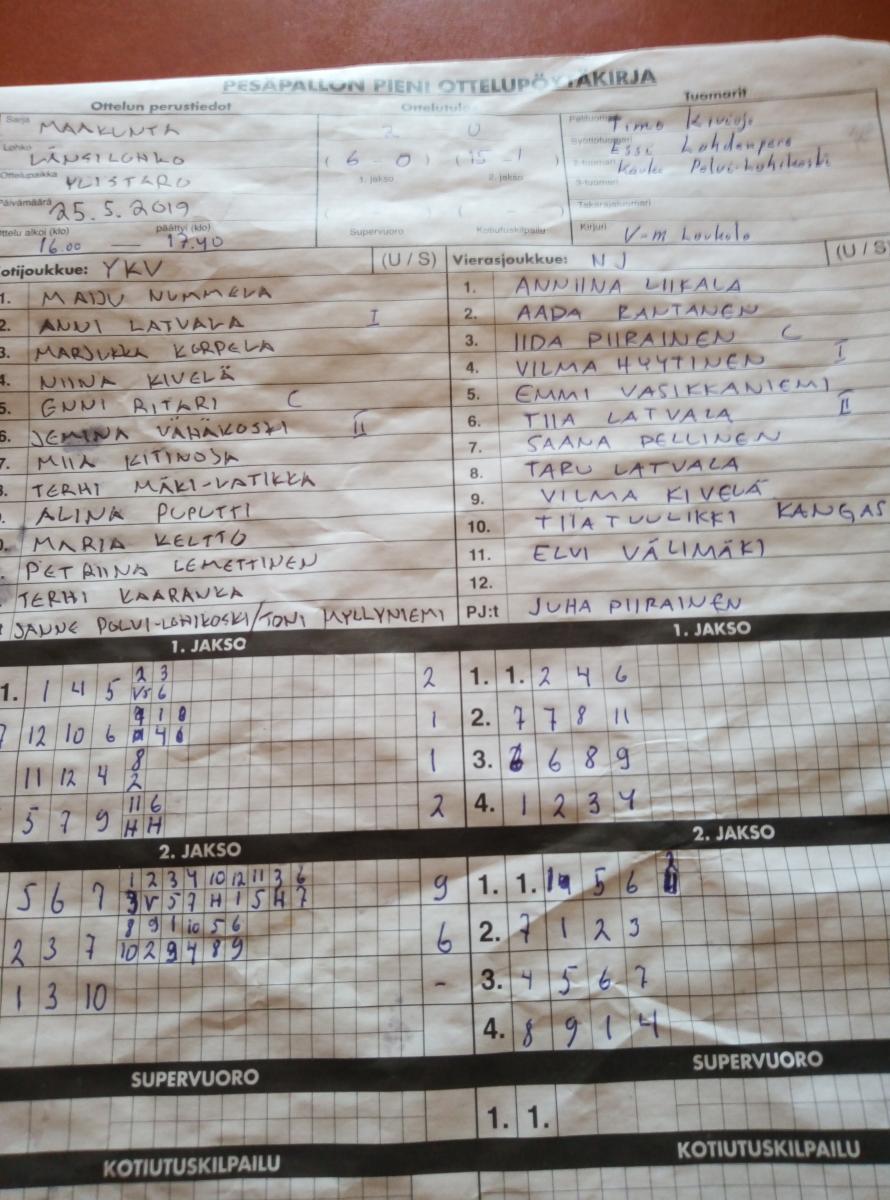 PESÄPALLON PIENI OTTELUPÖYTÄKIRJA
Ottelun perustiedot
Sarja MAAKUNTA
Lohko LÄNSILOHKO
Ottelupaikka YLISTARO
Päivämäärä 25.5.2019
Ottelu alkoi (klo) päättyi (klo)
16.00 — 17.40
Ottelutulos
2 0
(6 - 0) (15 - 1)
1. jakso 2. jakso
( - ) ( - )
Supervuoro Kotiutuskilpailu
Tuomarit
Pelituomari Timo
Syöttötuomari Essi
2-tuomari Polvi-Lohikoski
3-tuomari
Takarajatuomari
Kirjuri V-m Loukola
Kotijoukkue: YKV (U / S)
1. MAIJU NUMMELA
2. ANNI LATVALA I
3. MARJUKKA KORPELA
4. NIINA KIVELÄ
5. ENNI RITARI C
6. JEMINA VÄHÄKOSKI II
7. MIIA KITINOJA
8. TERHI MÄKI-VATIKKA
ALINA PUPUTTI
MARIA KELTTO
PETRIINA LEMETTINEN
TERHI KAARANKA
SANNE POLVI-LOHIKOSKI/TONI MYLLYNIEMI
Vierasjoukkue: NJ (U / S)
1. ANNIINA LIIKALA
2. AADA RANTANEN
3. IIDA PIIRAINEN C
4. VILMA HYYTINEN I
5. EMMI VASIKKANIEMI
6. TIIA LATVALA II
7. SAANA PELLINEN
8. TARU LATVALA
9. VILMA KIVELÄ
10. TIIA TUULIKKI KANGAS
11. ELVI VÄLIMÄKI
12.
PJ:t JUHA PIIRAINEN
1. JAKSO
1. 1 4 5 2 3 2
V5 6
7 12 10 6 1 8 1
4 6
11 12 4 8 1
2
5 7 9 11 6 2
H H
1. JAKSO
1. 1. 2 4 6
2. 7 7 8 11
3. 6 8 9
4. 1 2 3 4
2. JAKSO
5 6 7 1 2 3 4 10 12 11 3 6 9
3 V 5 7 H 1 5 H 7
2 3 7 8 9 1 10 5 6 6
10 2 9 4 8 9
1 3 10 -
2. JAKSO
1. 1. 5 6
2. 7 1 2 3
3. 4 5 6 7
4. 8 9 1 4
SUPERVUORO
SUPERVUORO
1. 1.
KOTIUTUSKILPAILU
KOTIUTUSKILPAILU